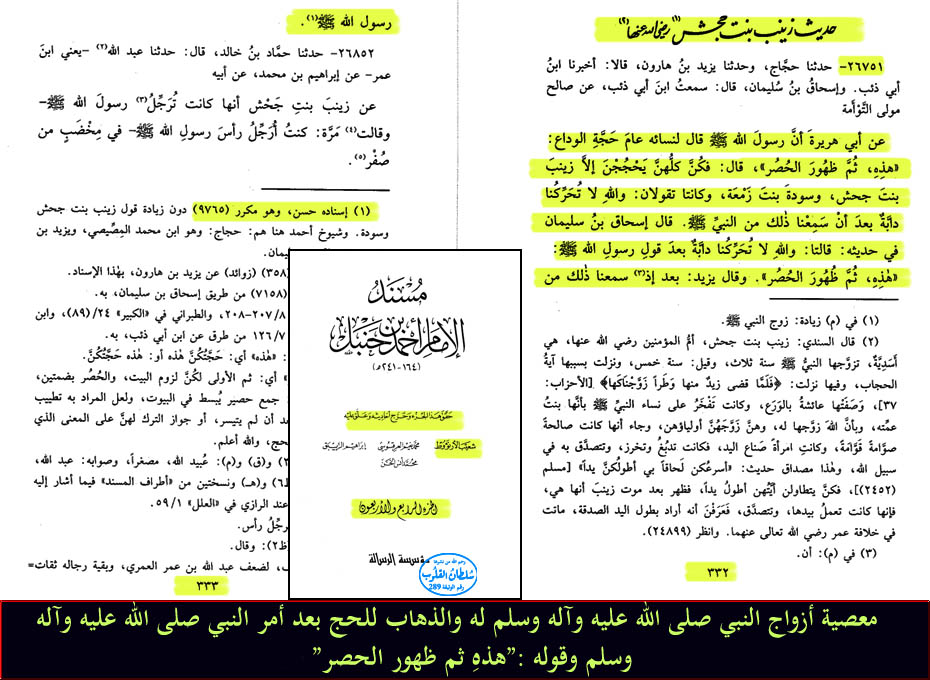 حديث زينب بنت جحش(١) رضي الله عنها(٢)
٢٦٧٥١- حدثنا حجَّاج، وحدثنا يزيد بنُ هارون، قالا: أخبرنا ابنُ
أبي ذئب. وإسحاقُ بنُ سُليمان، قال: سمعتُ ابنَ أبي ذئب، عن صالح
مولى التَّوْأَمة
عن أبي هريرةَ أنَّ رسولَ الله ﷺ قال لنسائه عامَ حَجَّةِ الوداع:
«هذِهِ، ثمَّ ظهُورَ الحُصُر»، قال: فكُنَّ كلُّهنَّ يَحْجُجْنَ إلاَّ زينبَ
بنتَ جحش، وسودةَ بنتَ زَمْعة، وكانتا تقولان: واللهِ لا تُحَرِّكُنا
دابةٌ بعدَ أنْ سَمِعْنا ذٰلك من النبيِّ ﷺ. قال إسحاقُ بنُ سليمان
في حديثه: قالتا: واللهِ لا تُحَرِّكُنا دابَّةٌ بعدَ قولِ رسولِ الله ﷺ:
«هٰذِهِ، ثمَّ ظُهُورَ الحُصُر». وقال يزيد: بعد إذ(٣) سمعنا ذٰلك من
(١) في (م) زيادة: زوج النبي ﷺ.
(٢) قال السندي: زينب بنت جحش، أمُّ المؤمنين رضي الله عنها، هي
أَسَدِيَّةٌ، تزوَّجها النبيُّ ﷺ سنة ثلاث، وقيل: سنة خمس، ونزلت بسببها آيةُ
الحجاب، وفيها نزلت: ﴿فَلَمَّا قضى زيدٌ منها وَطَراً زَوَّجْنَاكَها﴾ [الأحزاب:
٣٧]، وَصَفَتْها عائشةُ بالوَرَع، وكانت تَفْخَرُ على نساء النبيِّ ﷺ بأنَّها بنتُ
عمَّته، وبأنَّ اللهَ زوَّجها له، وهنَّ زَوَّجَهُنَّ أولياؤهن، وجاء أنها كانت صالحةً
صوَّامةً قَوَّامَةً، وكانتِ امرأةً صَنَاعِ اليد، فكانت تدبُغُ وتخرز، وتتصدَّق به في
سبيل الله، وهٰذا مصداق حديث: «أسرعُكن لَحاقاً بي أطولُكنَّ يداً» [مسلم
(٢٤٥٢)]، فكنَّ يتطاولن أيَّتُهن أطولُ يداً، فظهر بعد موت زينبَ أنها هي،
فإنها كانت تعملُ بيدها، وتتصدَّق، فَعَرَفْنَ أنه أراد بطول اليد الصدقة، ماتت
في خلافة عمر رضي الله تعالى عنهما. وانظر (٢٤٨٩٩).
(٣) في (م): أن.
٣٣٢
رسول الله ﷺ(١).
٢٦٨٥٢- حدثنا حمَّاد بنُ خالد، قال: حدثنا عبد الله(٢) -يعني ابنَ
عمر- عن إبراهيم بن محمد، عن أبيه
عن زينبَ بنتِ جَحْش أنها كانت تُرَجِّلُ(٣) رسولَ الله ﷺ-
وقالت(٤) مَرَّة: كنتُ أُرَجِّلُ رأسَ رسولِ الله ﷺ- في مِخْضَبٍ من
صُفْر(٥).
(١) إسناده حسن، وهو مكرر (٩٧٦٥) دون زيادة قول زينب بنت جحش
وسودة. وشيوخ أحمد هنا هم: حجاج: وهو ابن محمد المِصِّيصي، ويزيد بن
ليمان.
(٣٥٨) (زوائد) عن يزيد بن هارون، بهٰذا الإسناد.
(٧١٥٨) من طريق إسحاق بن سليمان، به.
٢٠٧/٨-٢٠٨، والطبراني في «الكبير» ٢٤/(٨٩)، وابن
١٢٦/٧ من طرق عن ابن أبي ذئب، به.
: «هذه» أي: حَجَّتُكُنَّ هٰذه أو: هٰذه حَجَّتُكُنَّ.
» أي: ثم الأولى لكُنَّ لزوم البيت، والحُصُر بضمتين،
جمع حصير يُبسط في البيوت، ولعل المراد به تطييب
د أن لم يتيسر، أو جواز الترك لهنَّ على المعنى الذي
حج، والله أعلم.
) و(ق) و(م): عُبيد الله، مصغراً، وصوابه: عبد الله،
٦) و(هـ) ونسختين من «أطراف المسند» فيما أشار إليه
عند الرازي في «العلل» ٥٩/١.
رجِّلُ رأس.
ظ٢): وقال.
، لضعف عبد الله بن عمر العمري، وبقية رجاله ثقات=
٣٣٣
مُسْنَدُ
الإمام أحمد بن حنبل
(١٦٤-٢٤١هـ)
حقق هذا الجزء وخرج أحاديثه وعلق عليه
شعيب الأرنؤوط
محمد نعيم العرقسوسي
إبراهيم الزيبق
الجزء الرابع والأربعون
مؤسسة الرسالة
سُلطانُ القلُوب
رقم الوثيقة 289
معصية أزواج النبي صلى الله عليه وآله وسلم له والذهاب للحج بعد أمر النبي صلى الله عليه وآله
وسلم وقوله :”هذهِ ثم ظهور الحصر”